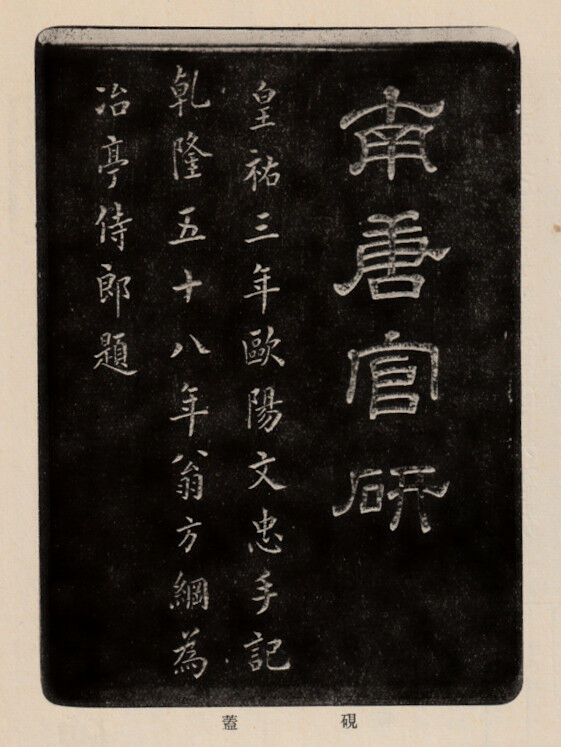 南唐官硏
皇祐三年歐陽文忠手記
乾隆五十八年翁方綱為
冶亭侍郎題
硯蓋